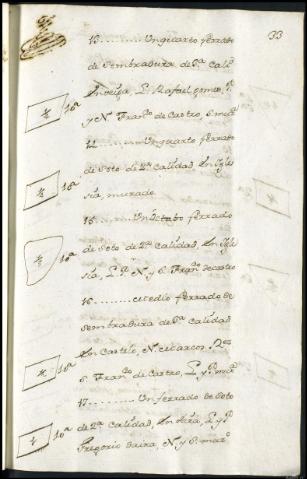 33
13........Un quarto ferrado
de Sembradura de 3ª calid
En Rafael gomez
y N. Franᶜᵒ de Castro, S. marᵒ
14.......Un quarto ferrado
de Soto de 2ª calidad, En Igle
sia, murado
15......Un Octabo ferrado
de Soto de 2ª Calidad, En Igle
sia, L. P. N. y S. Franᶜᵒ de castro
16.........medio ferrado de
Sembradura de 3ª calidad
En Castelo, N. cⁿ Marcos
S. Franᶜᵒ de Castro, L. y P. marᵒ
17......Un ferrado de Soto
de 2ª calidad, En L. y P.
Gregorio N. y S. marᵒ